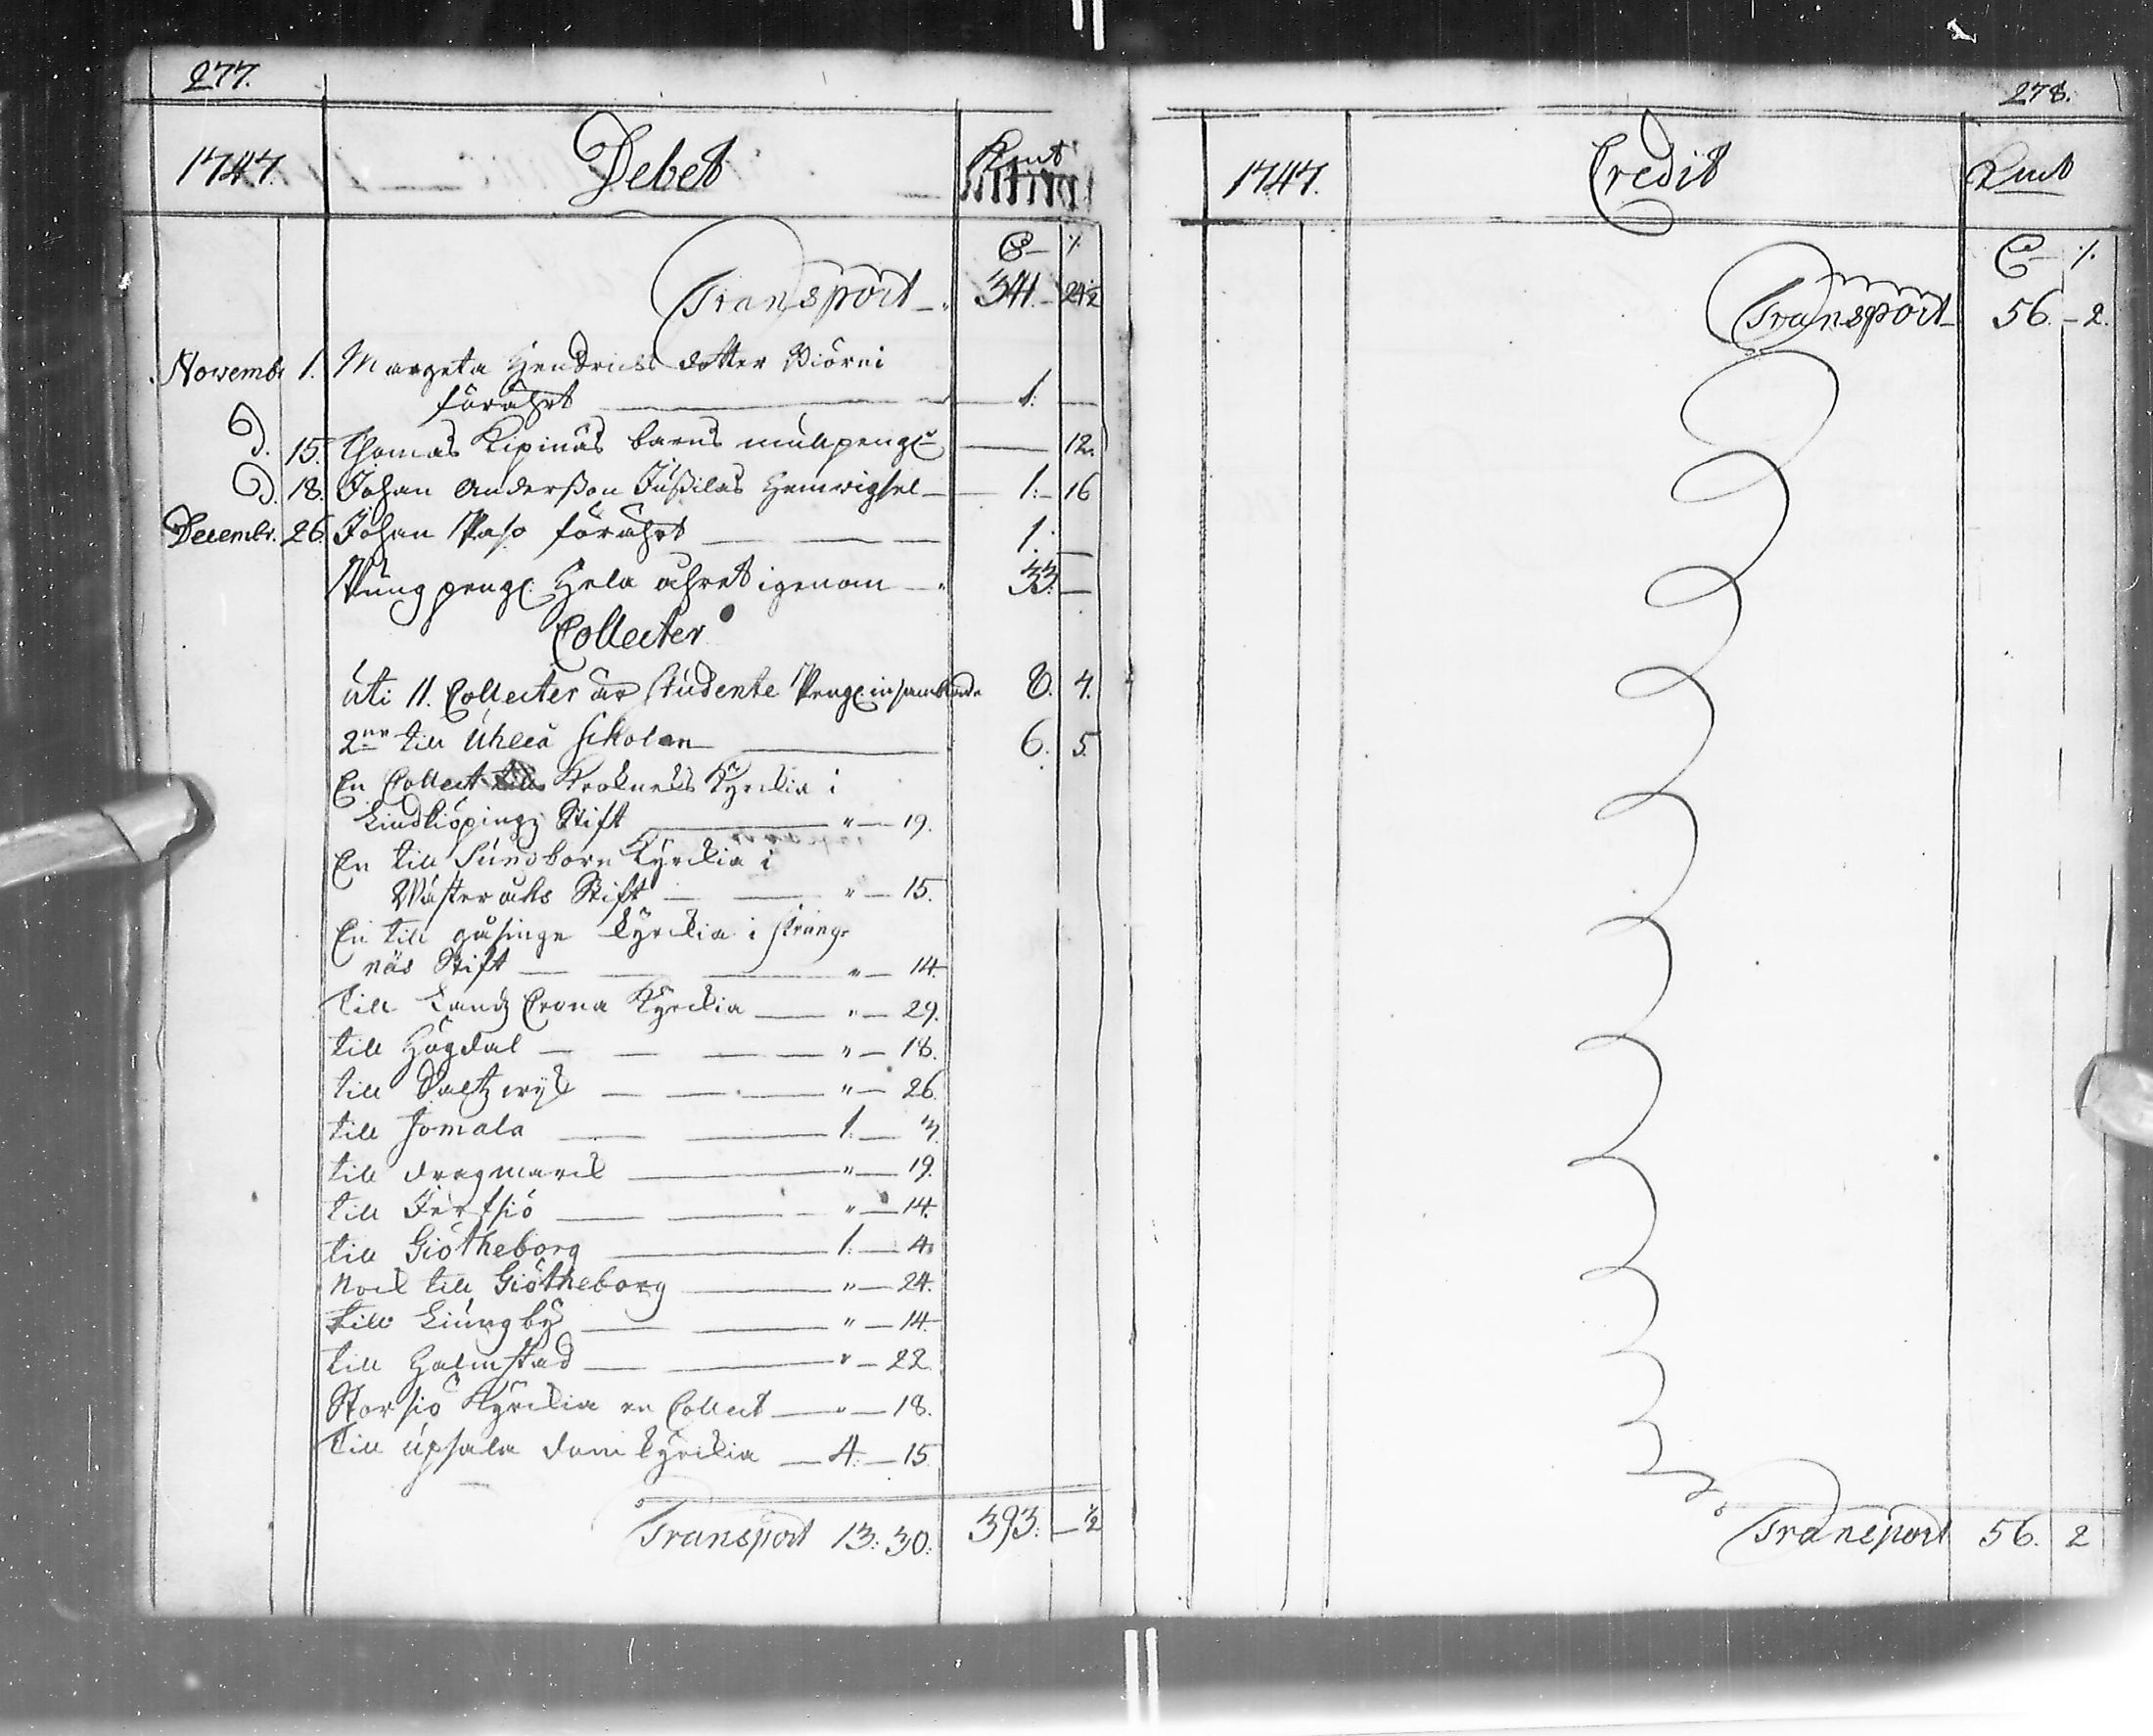 277.
1747. Debet Kmt
C %
Transport 341. 24½
Novembr 1. Margeta Hendrichs dotter Biörni
förährt 1.
D. 15. Thomas Kipinäs barns mullpengr 12.
D. 18. Johan Anderßon Jußilas Hemvigsel 1. 16
Decembr. 26. Johan Paso förährt 1.
Pung pengr Hela åhret igenom 33.
Collecter
uti 11. Collecter är studente Pengr insamblade 8. 4.
2ne till Uhleå scholan 6. 5.
En Collect till Kroknells Kyrckia i
Lindkiöpingz Stift " 19.
En till Sundborn Kyrckia i
Västeråhs Stift " 15.
En till gåsinge kyrckia i sträng-
näs Stift " 14.
till Landz Crona Kyrckia " 29.
till Högdal " 18.
till Saltzvijk " 26.
till Jomala 1. 3.
till dragmarck " 19.
till Järfsiö " 14.
till Giötheborg 1. 4.
Noch till Giötheborg " 24.
till Liungby " 14.
till Halmstad " 22.
Storsiö Kyrckia en Collect " 18.
till Upsala dom kyrckia 4. 15.
Transport 13: 30: 393. ½
278.
1747. Credit Kmt
C %
Transport 56. 2.
Transport 56. 2